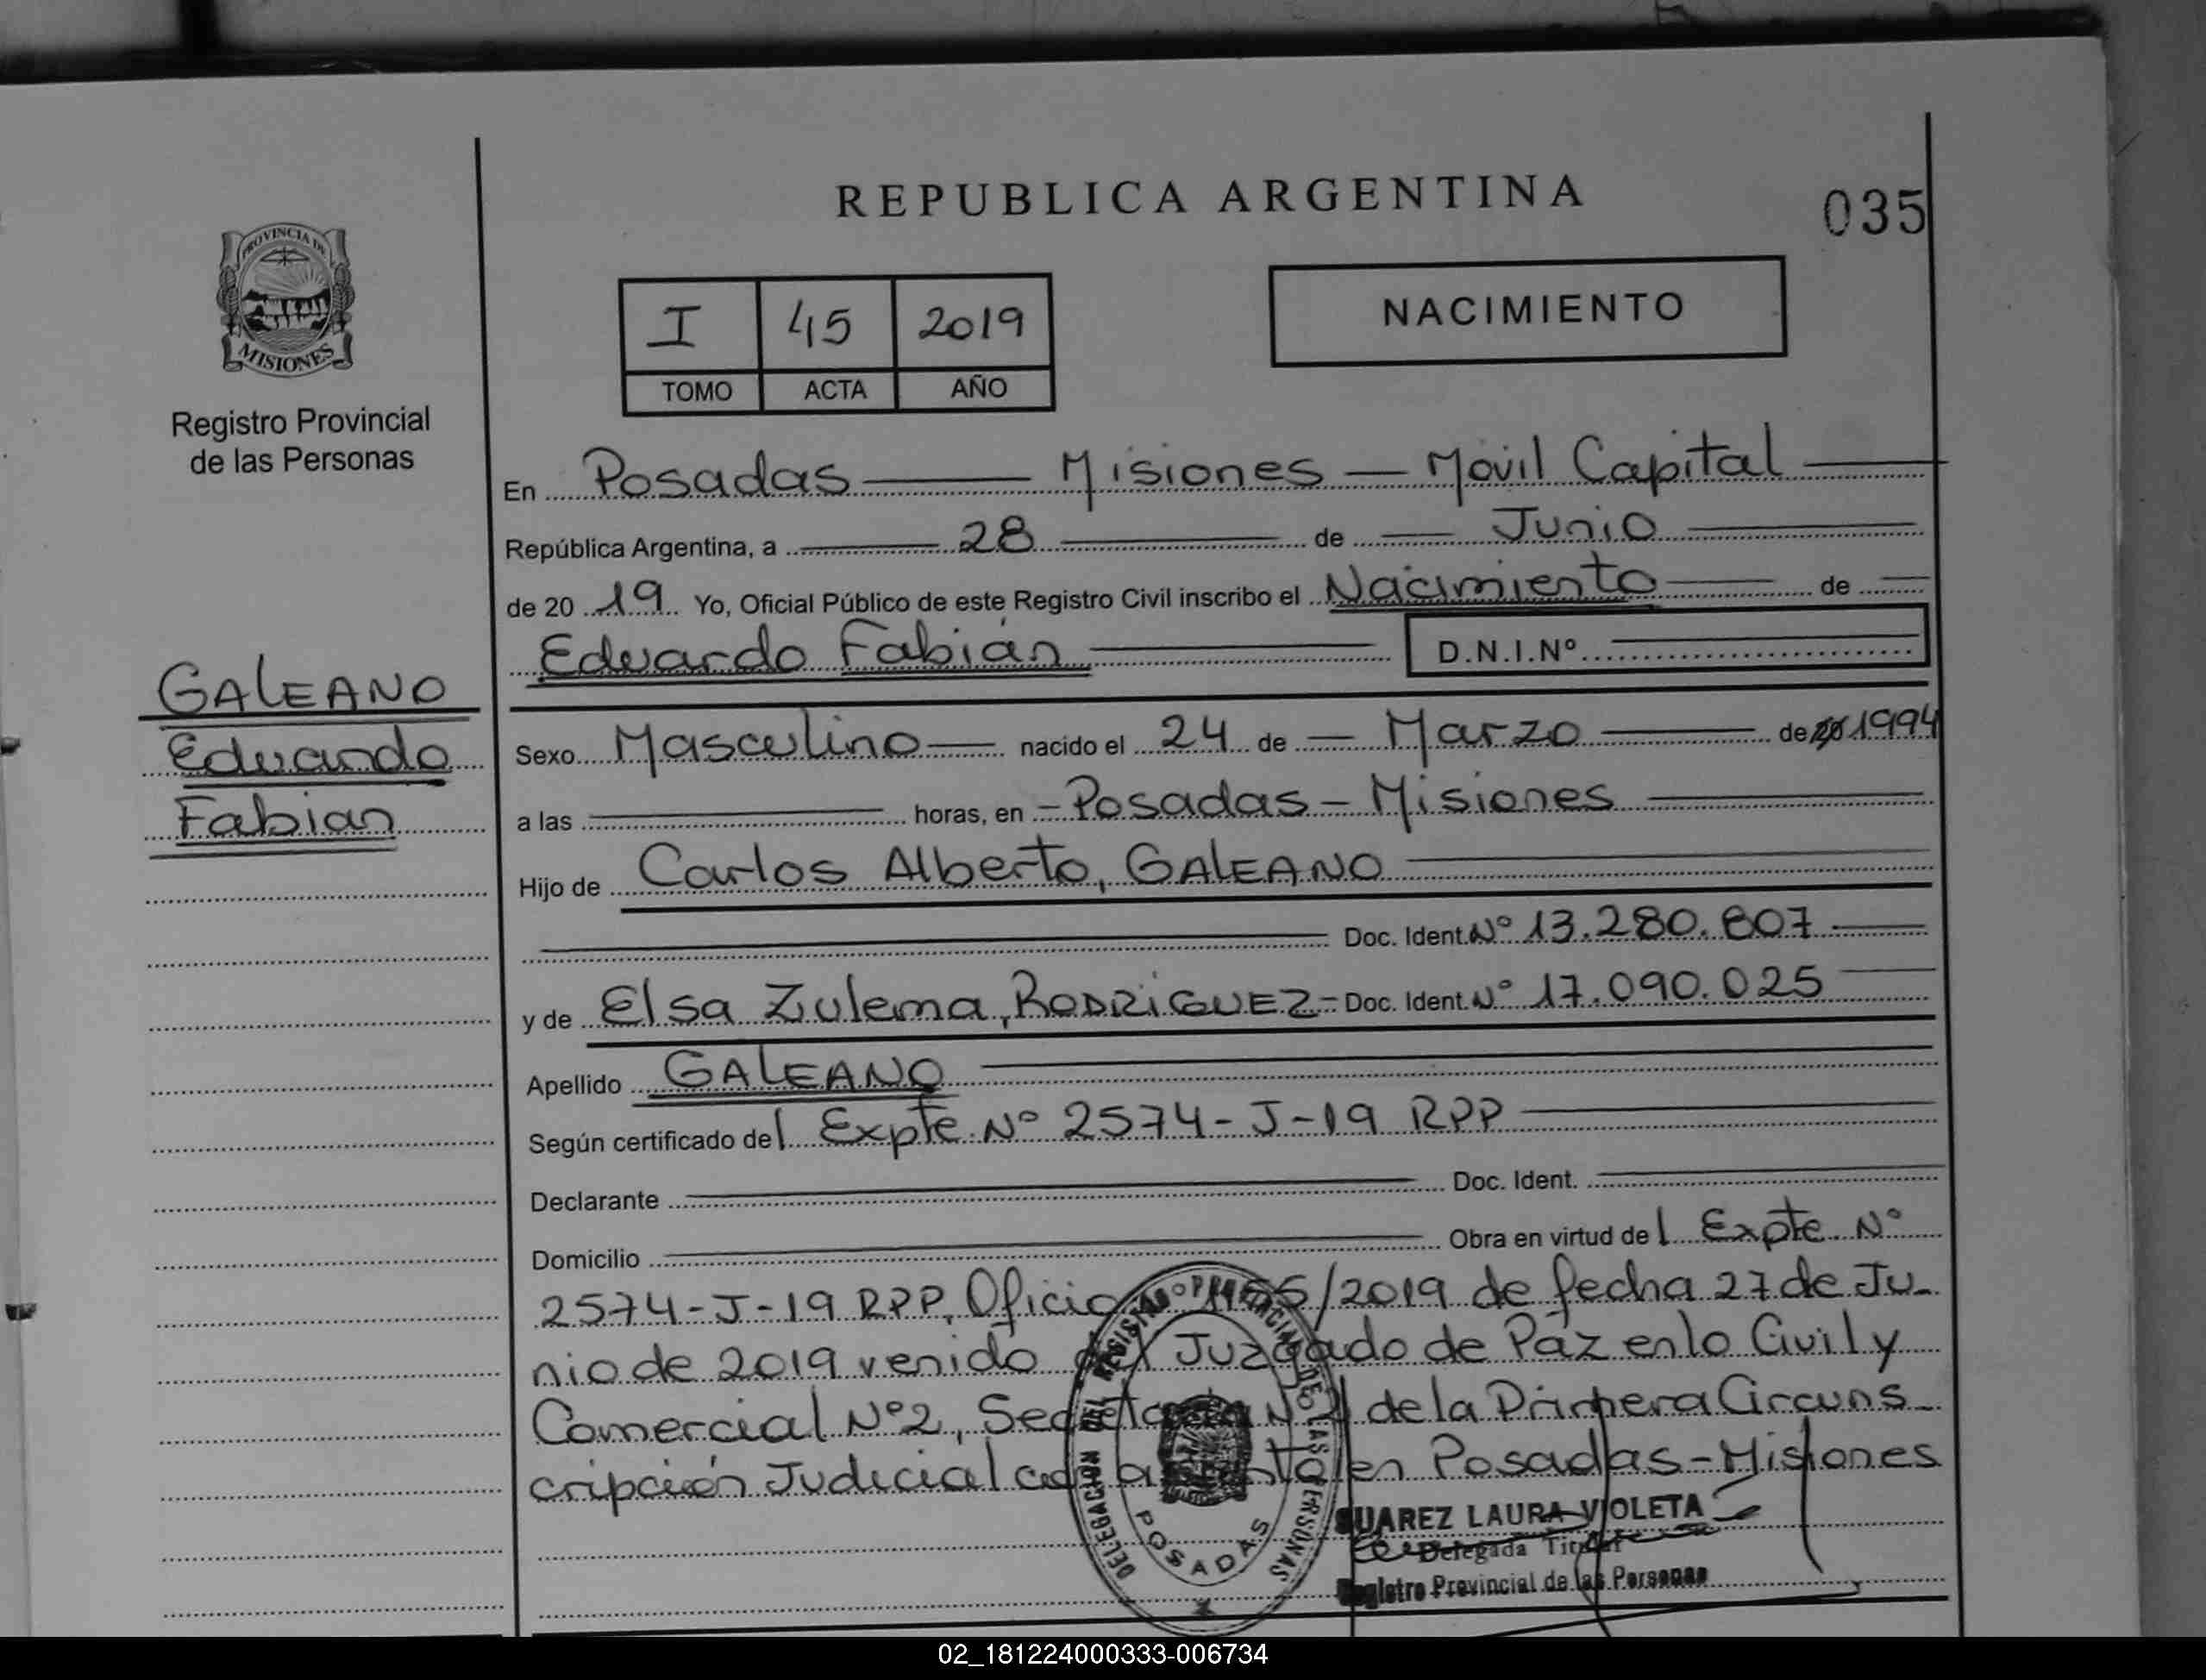 REPUBLICA ARGENTINA
035
PROVINCIA DE
MISIONES
Registro Provincial
de las Personas
I 45 2019
TOMO ACTA AÑO
NACIMIENTO
En Posadas Misiones - Movil Capital
República Argentina, a 28 de Junio
de 20 19 Yo, Oficial Público de este Registro Civil inscribo el Nacimiento de
Eduardo Fabián D.N.I.Nº
GALEANO
Eduardo
Fabian
Sexo Masculino nacido el 24 de Marzo de 1994
a las horas, en - Posadas - Misiones
Hijo de Carlos Alberto, GALEANO
Doc. Ident. Nº 13.280.807
y de Elsa Zulema, RODRIGUEZ - Doc. Ident. Nº 17.090.025
Apellido GALEANO
Según certificado del Expte. Nº 2574-J-19 RPP
Declarante Doc. Ident.
Domicilio Obra en virtud del Expte. Nº
2574-J-19 RPP, Oficio /2019 de fecha 27 de Ju-
nio de 2019 venido del Juzgado de Paz en lo Civil y
Comercial Nº2, Secretaria Nº de la Primera Circuns-
cripción Judicial con asiento en Posadas - Misiones
DELEGACION DEL REGISTRO PROVINCIAL DE LAS PERSONAS
POSADAS
SUAREZ LAURA VIOLETA
Delegada Titular
Registro Provincial de las Personas
02_181224000333-006734